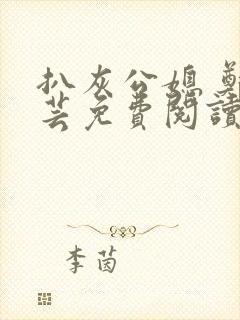 扒灰公媳 鄭
芸免費閱讀
李茵